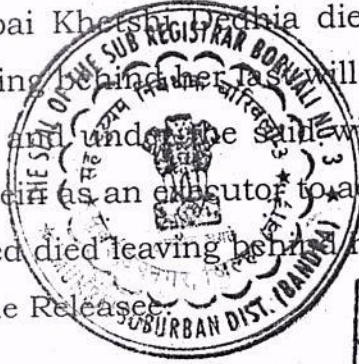 bai Khetshi Dedhia die
ing behind her last will
and under the said wi
ein as an executor to a
ed died leaving behind
e Releasee.
THE SEAL OF THE SUB REGISTRAR BORIVALI NO. 3
SUBURBAN DIST. (BANDRA)